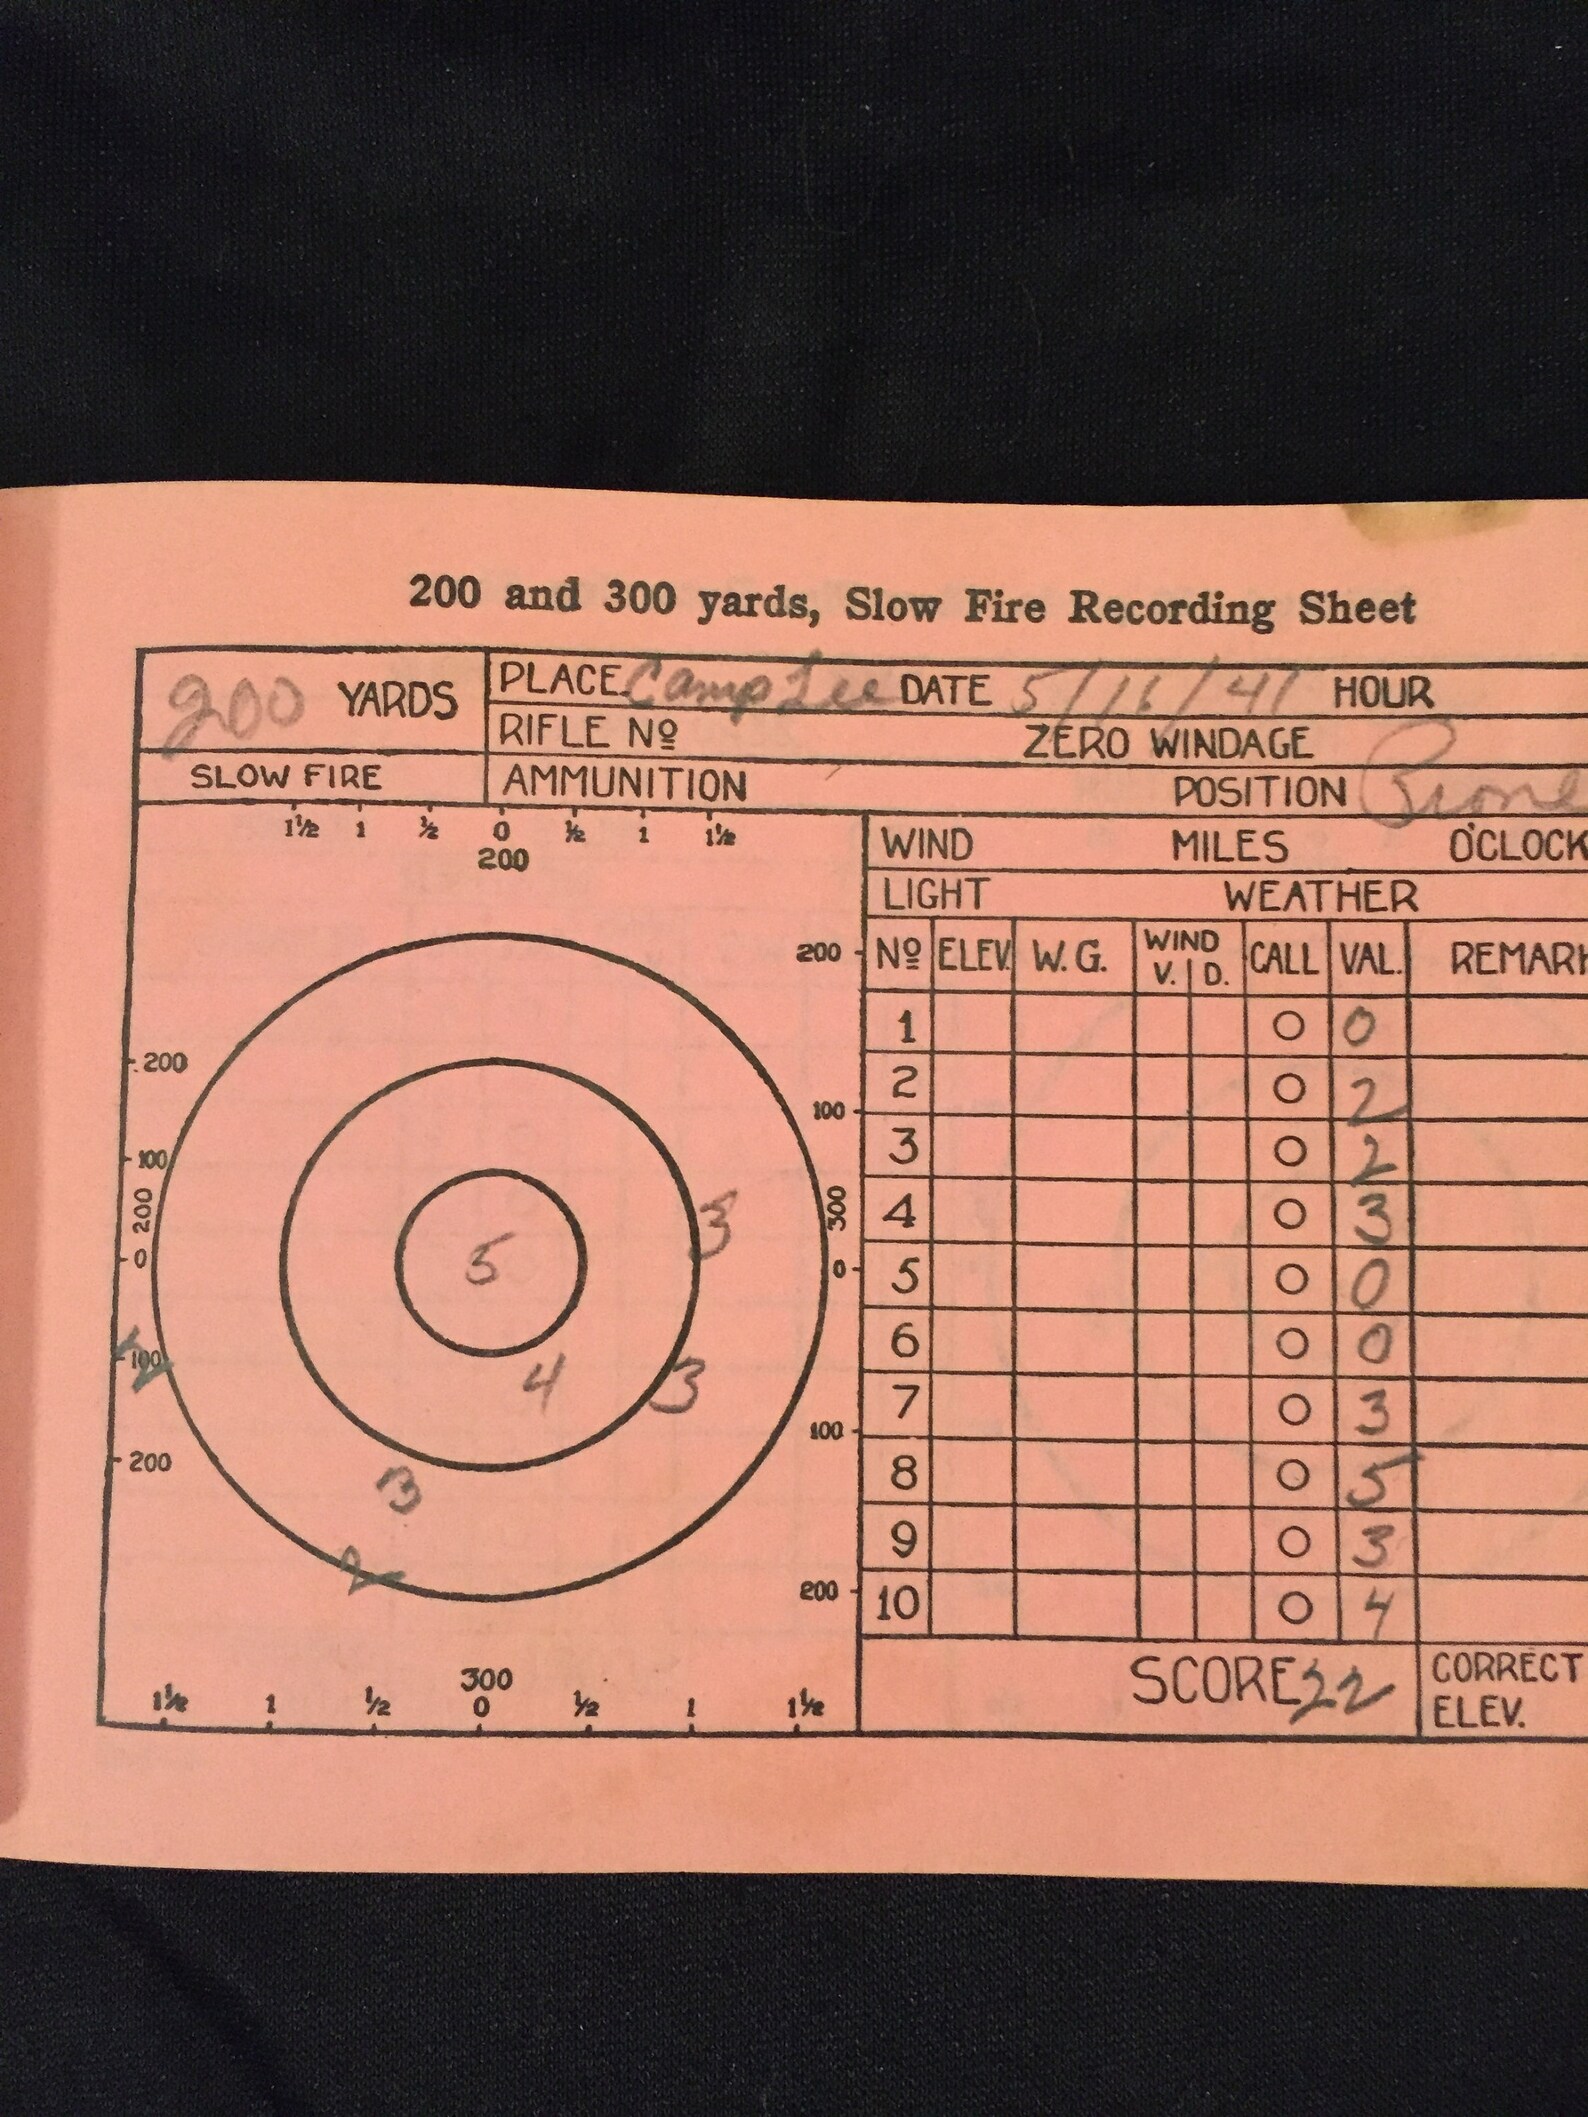 200 and 300 yards, Slow Fire Recording Sheet
200 YARDS
SLOW FIRE
PLACE Camp Lee DATE 5/16/41 HOUR
RIFLE Nº ZERO WINDAGE
AMMUNITION POSITION Prone
1½ 1 ½ 0 ½ 1 1½
200
WIND MILES O'CLOCK
LIGHT WEATHER
Nº ELEV. W. G. WIND V. D. CALL VAL. REMARK
1 O 0
2 O 2
3 O 2
4 O 3
5 O 0
6 O 0
7 O 3
8 O 5
9 O 3
10 O 4
SCORE 22
CORRECT
ELEV.
200
100
200
0
100
200
200
100
300
0
100
200
3
5
4
3
3
2
2
300
1½ 1 ½ 0 ½ 1 1½